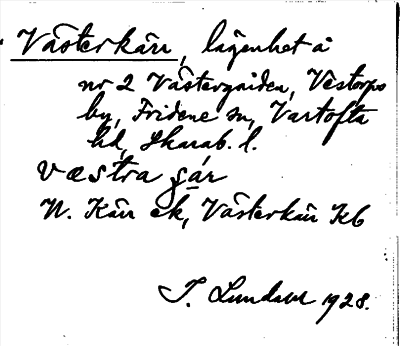 Västerkärr, lägenhet å
nr 2 Västergården, Vestorps
by, Fridene sn, Vartofta
hd, Skarab. l.
væstra ʃär
N. Kärr ek, Västerkärr Kb
I. Lundahl 1928.